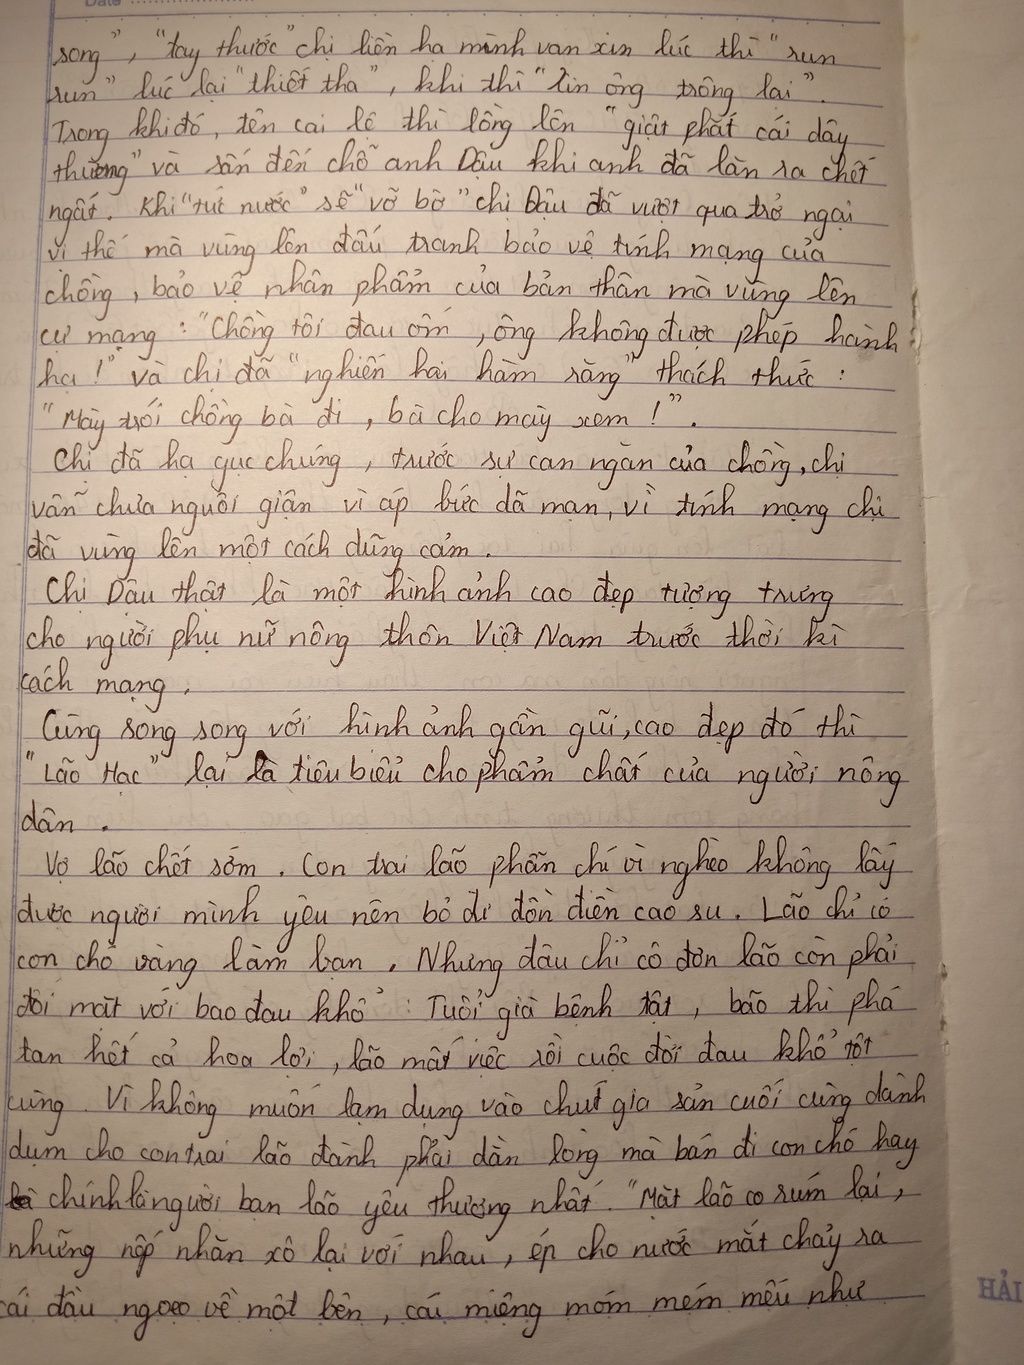 Date
song", "tay thước" chị liền hạ mình van xin lúc thì "run
run" lúc lại "thiết tha", khi thì "xin ông trông lại".
Trong khi đó, tên cai lệ thì lồng lên "giật phắt cái dây
thừng" và sấn đến chỗ anh Dậu khi anh đã lăn ra chết
ngất. Khi "tức nước" sẽ "vỡ bờ" chị Dậu đã vượt qua trở ngại
vì thế mà vùng lên đấu tranh bảo vệ tính mạng của
chồng, bảo vệ nhân phẩm của bản thân mà vùng lên
cự mạng: "Chồng tôi đau ốm, ông không được phép hành
hạ!" và chị đã "nghiến hai hàm răng" thách thức:
"Mày trói chồng bà đi, bà cho mày xem!".
Chị đã hạ gục chúng, trước sự can ngăn của chồng, chị
vẫn chưa nguôi giận vì áp bức dã man, vì tính mạng chị
đã vùng lên một cách dũng cảm.
Chị Dậu thật là một hình ảnh cao đẹp tượng trưng
cho người phụ nữ nông thôn Việt Nam trước thời kì
cách mạng.
Cùng song song với hình ảnh gần gũi, cao đẹp đó thì
"Lão Hạc" lại là tiêu biểu cho phẩm chất của người nông
dân.
Vợ lão chết sớm. Con trai lão phẫn chí vì nghèo không lấy
được người mình yêu nên bỏ đi đồn điền cao su. Lão chỉ có
con chó vàng làm bạn. Nhưng đâu chỉ cô đơn lão còn phải
đối mặt với bao đau khổ: Tuổi già bệnh tật, bão thì phá
tan hết cả hoa lợi, lão mất việc rồi cuộc đời đau khổ tột
cùng. Vì không muốn lạm dụng vào chút gia sản cuối cùng dành
dụm cho con trai lão đành phải dằn lòng mà bán đi con chó hay
chính là người bạn lão yêu thương nhất. "Mặt lão co rúm lại,
những nếp nhăn xô lại với nhau, ép cho nước mắt chảy ra
cái đầu ngoẹo về một bên, cái miệng móm mém mếu như
HẢI